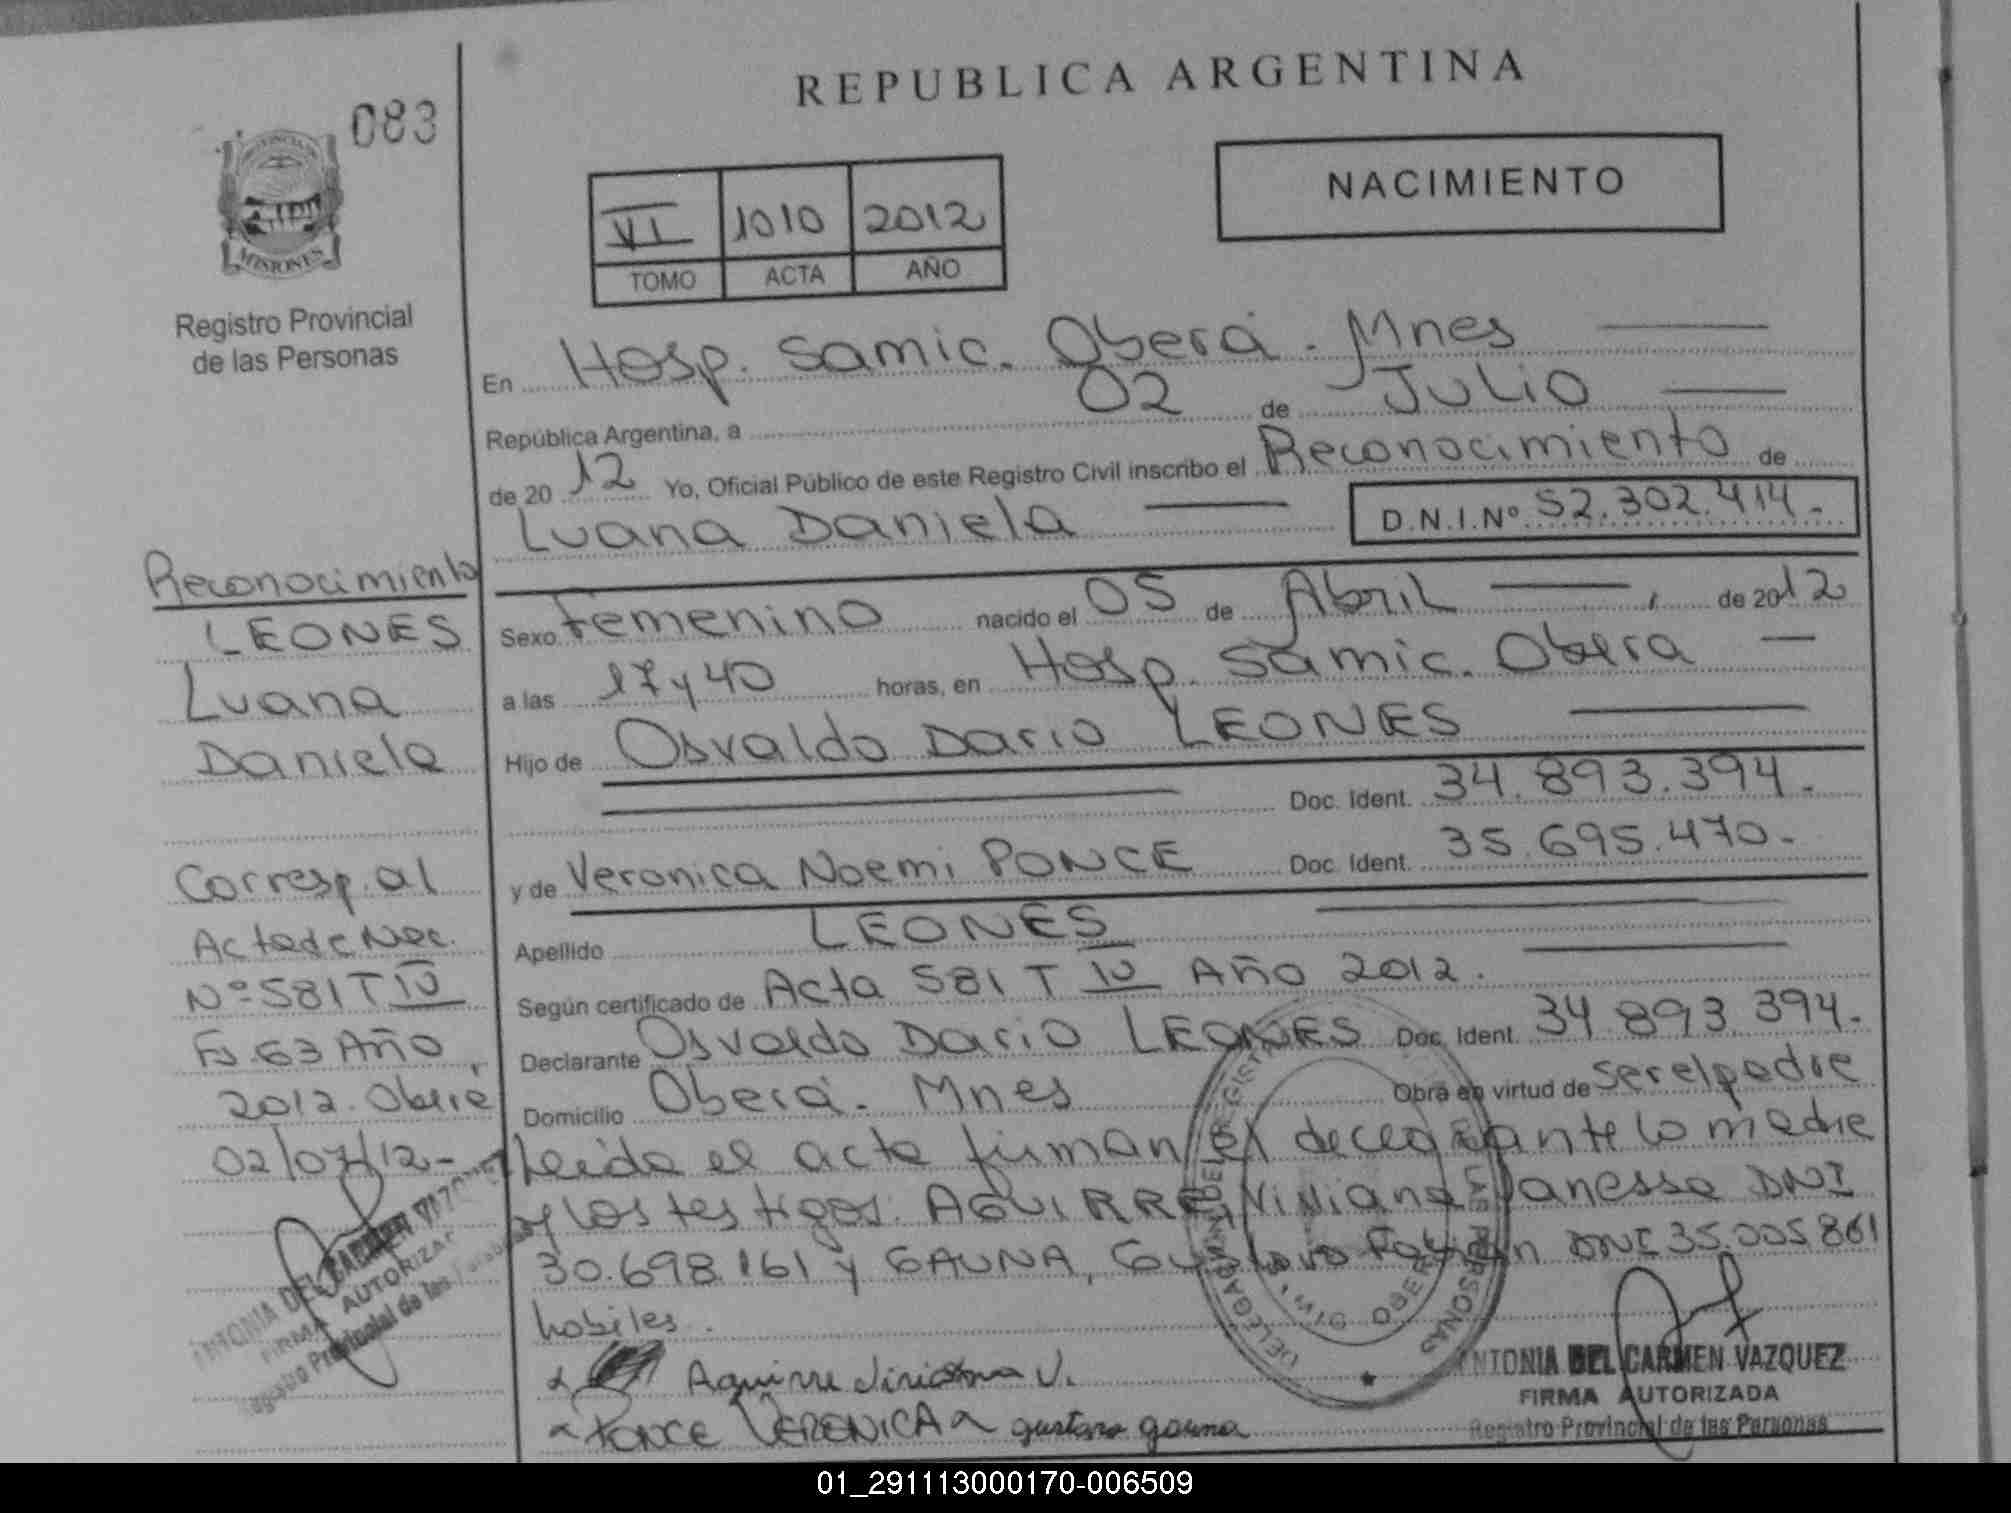 REPUBLICA ARGENTINA
083
NACIMIENTO
VI 1010 2012
TOMO ACTA AÑO
MISIONES
Registro Provincial
de las Personas
En Hosp. Samic. Oberá. Mnes
República Argentina, a 02 de Julio
de 20 12 Yo, Oficial Público de este Registro Civil inscribo el Reconocimiento de
Luana Daniela D.N.I.Nº 52.302.414.-
Sexo Femenino nacido el 05 de Abril, de 2012
a las 17 y 40 horas, en Hosp. Samic. Obera
Hijo de Osvaldo Dario LEONES
Doc. Ident. 34.893.394.-
y de Veronica Noemi PONCE Doc. Ident. 35.695.470.-
Apellido LEONES
Según certificado de Acta 581 T IV Año 2012.
Declarante Osvaldo Dario LEONES Doc. Ident. 34 893 394.-
Domicilio Oberá. Mnes Obra en virtud de ser el padre
Leida el acta firman el declarante la madre
y los testigos: AGUIRRE, Viviana Vanessa DNI
30.698.161 y GAUNA, Gustavo Fabian DNI 35.005.861
habiles.
Aguirre Viviana V.
PONCE VERENICA gustavo gauna
ANTONIA DEL CARMEN VAZQUEZ
FIRMA AUTORIZADA
Registro Provincial de las Personas
Reconocimiento
LEONES
Luana
Daniela
Corresp. al
Acta de Nac.
Nº 581 T IV
Fs. 63 Año
2012. Oberá
02/07/12-
ANTONIA DEL CARMEN VAZQUEZ
FIRMA AUTORIZADA
Registro Provincial de las Personas
01_291113000170-006509